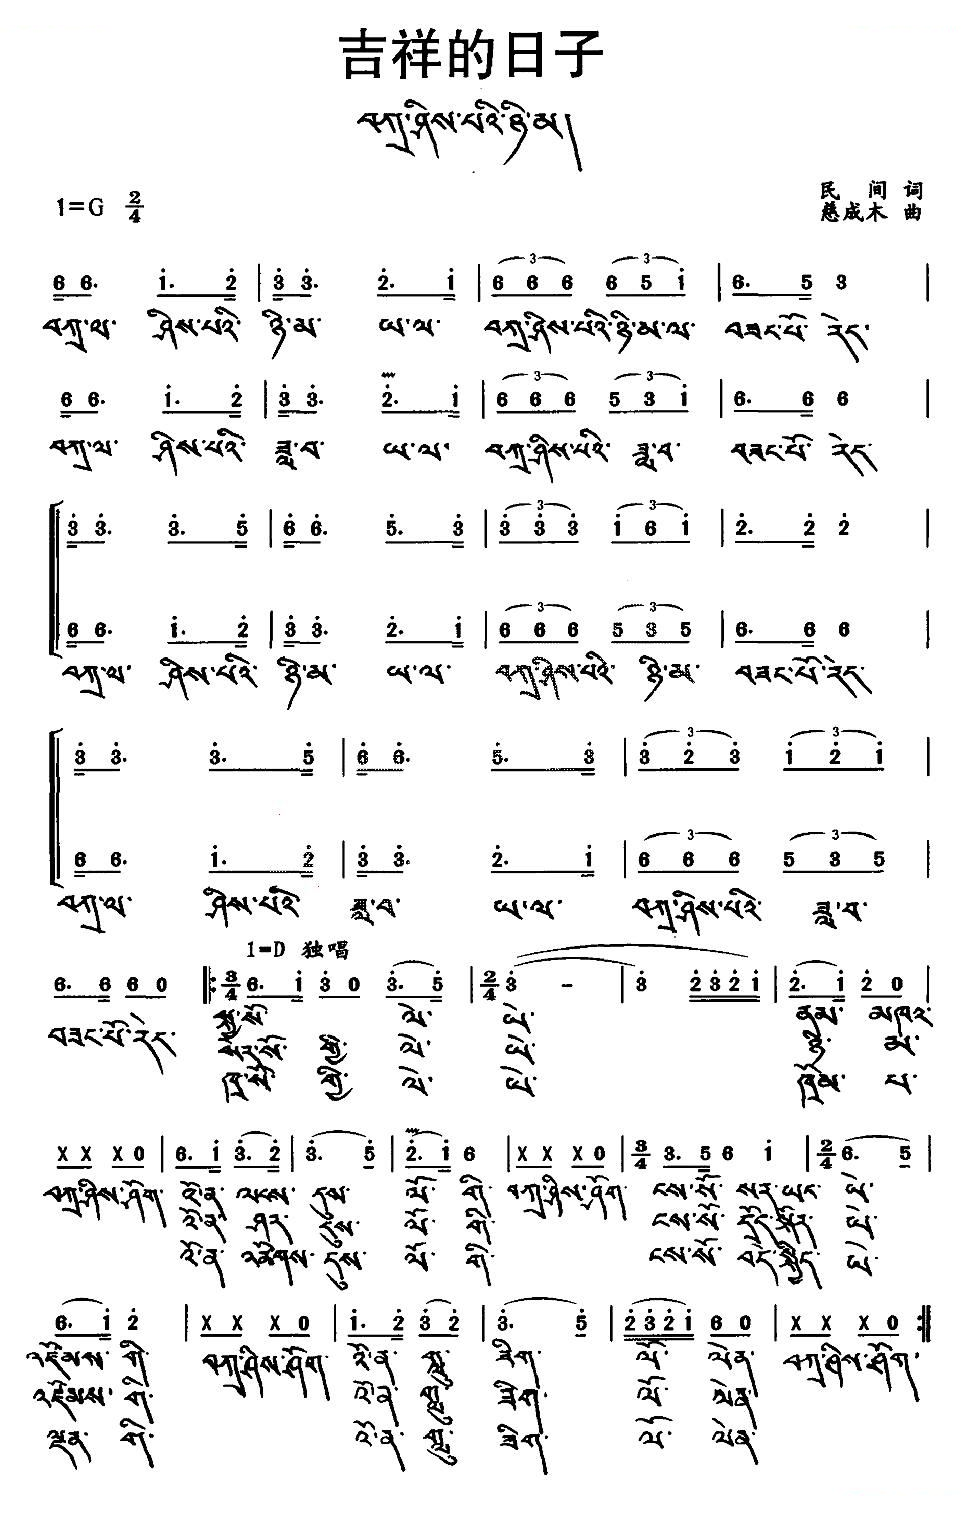 吉祥的日子
བཀྲ་ཤིས་པའི་ཉི་མ།
1=G 2/4
民 间 词
慈成木 曲
6 6. 1. 2 | 3 3. 2. 1 | 6 6 6 6 5 1 | 6. 5 3
བཀྲ་ལ་ ཤིས་པའི་ ཉི་མ་ ཡ་ལ་ བཀྲ་ཤིས་པའི་ཉི་མ་ལ་ བཟང་པོ་ རེད་
6 6. 1. 2 | 3 3. 2. 1 | 6 6 6 5 3 1 | 6. 6 6
བཀྲ་ལ་ ཤིས་པའི་ ཟླ་བ་ ཡ་ལ་ བཀྲ་ཤིས་པའི་ ཟླ་བ་ བཟང་པོ་ རེད་
3 3. 3. 5 | 6 6. 5. 3 | 3 3 3 1 6 1 | 2. 2 2
6 6. 1. 2 | 3 3. 2. 1 | 6 6 6 5 3 5 | 6. 6 6
བཀྲ་ལ་ ཤིས་པའི་ ཉི་མ་ ཡ་ལ་ བཀྲ་ཤིས་པའི་ ཉི་མ་ བཟང་པོ་རེད་
3 3. 3. 5 | 6 6. 5. 3 | 3 2 3 1 2 1
6 6. 1. 2 | 3 3. 2. 1 | 6 6 6 5 3 5
བཀྲ་ལ་ ཤིས་པའི་ ཟླ་བ་ ཡ་ལ་ བཀྲ་ཤིས་པའི་ ཟླ་བ་
1=D 独唱
6. 6 6 0 3/4 6. 1 3 0 3. 5 | 2/4 3 - | 3 2 3 2 1 | 2. 1 2 0
བཟང་པོ་རེད་ ལེ་ ཡེ་ ནམ་ མཁའ་
ལེ་ ཡེ་ ཉི་ མ་
ལེ་ ཡེ་ ཁྲོམ་ པ་
X X X 0 | 6. 1 3. 2 | 3. 5 | 2. 1 6 | X X X 0 | 3/4 3. 5 6 1 | 2/4 6. 5
བཀྲ་ཤིས་ཤོག་ འོ་ན་ ལངས་ དུས་ ལོ་ གི་ བཀྲ་ཤིས་ཤོག་ ངས་སོ་ སར་ཡང་ ཡེ་
འོ་ན་ ཤར་ དུས་ ལོ་ གི་ ངས་སོ་ ཡེ་
འོ་ན་ འཛོགས་ དུས་ ལོ་ གི་ ངས་སོ་ ཡེ་
6. 1 2 | X X X 0 | 1. 2 3 2 | 3. 5 | 2 3 2 1 6 0 | X X X 0
འཛོམས་ གི་ བཀྲ་ཤིས་ཤོག་ འོ་ན་ གླུ་ ཟིག་ ལོ་ ལེན་ བཀྲ་ཤིས་ཤོག་
འཛོམས་ གི་ འོ་ན་ གླུ་ ཟིག་ ལོ་ ལེན་
ལྡན་ གི་ འོ་ན་ གླུ་ ཟིག་ ལོ་ ལེན་